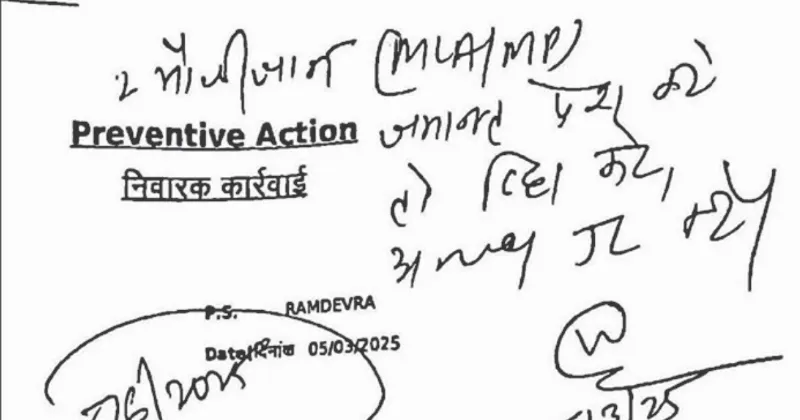 2 मौजीजान (MLA/MP)
जमानत पेश करे
Preventive Action
निवारक कार्रवाई
तो रिहा करे,
अन्यथा नहीं
P.S. RAMDEVRA
Date/दिनांक 05/03/2025
/2025
3/25